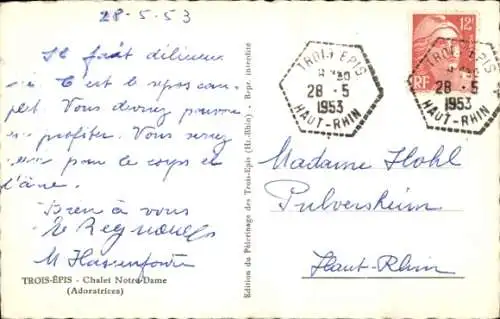 28-5-53
Il fait délicieux
ici C'est le repos com
plet. Vous devriez pouvoir
en profiter. Vous serez
pour le corps et
l'âme.
Bien à vous
TROIS-ÉPIS - Chalet Notre-Dame
(Adoratrices)
Edition du Pèlerinage des Trois-Epis (Ht.-Rhin) - Repr. interdite
TROIS-EPIS
30
28 - 5
1953
HAUT-RHIN
12F
RF
TROIS-EPIS
28 - 5
1953
HAUT-RHIN
Madame Hohl
Pulversheim
Haut-Rhin